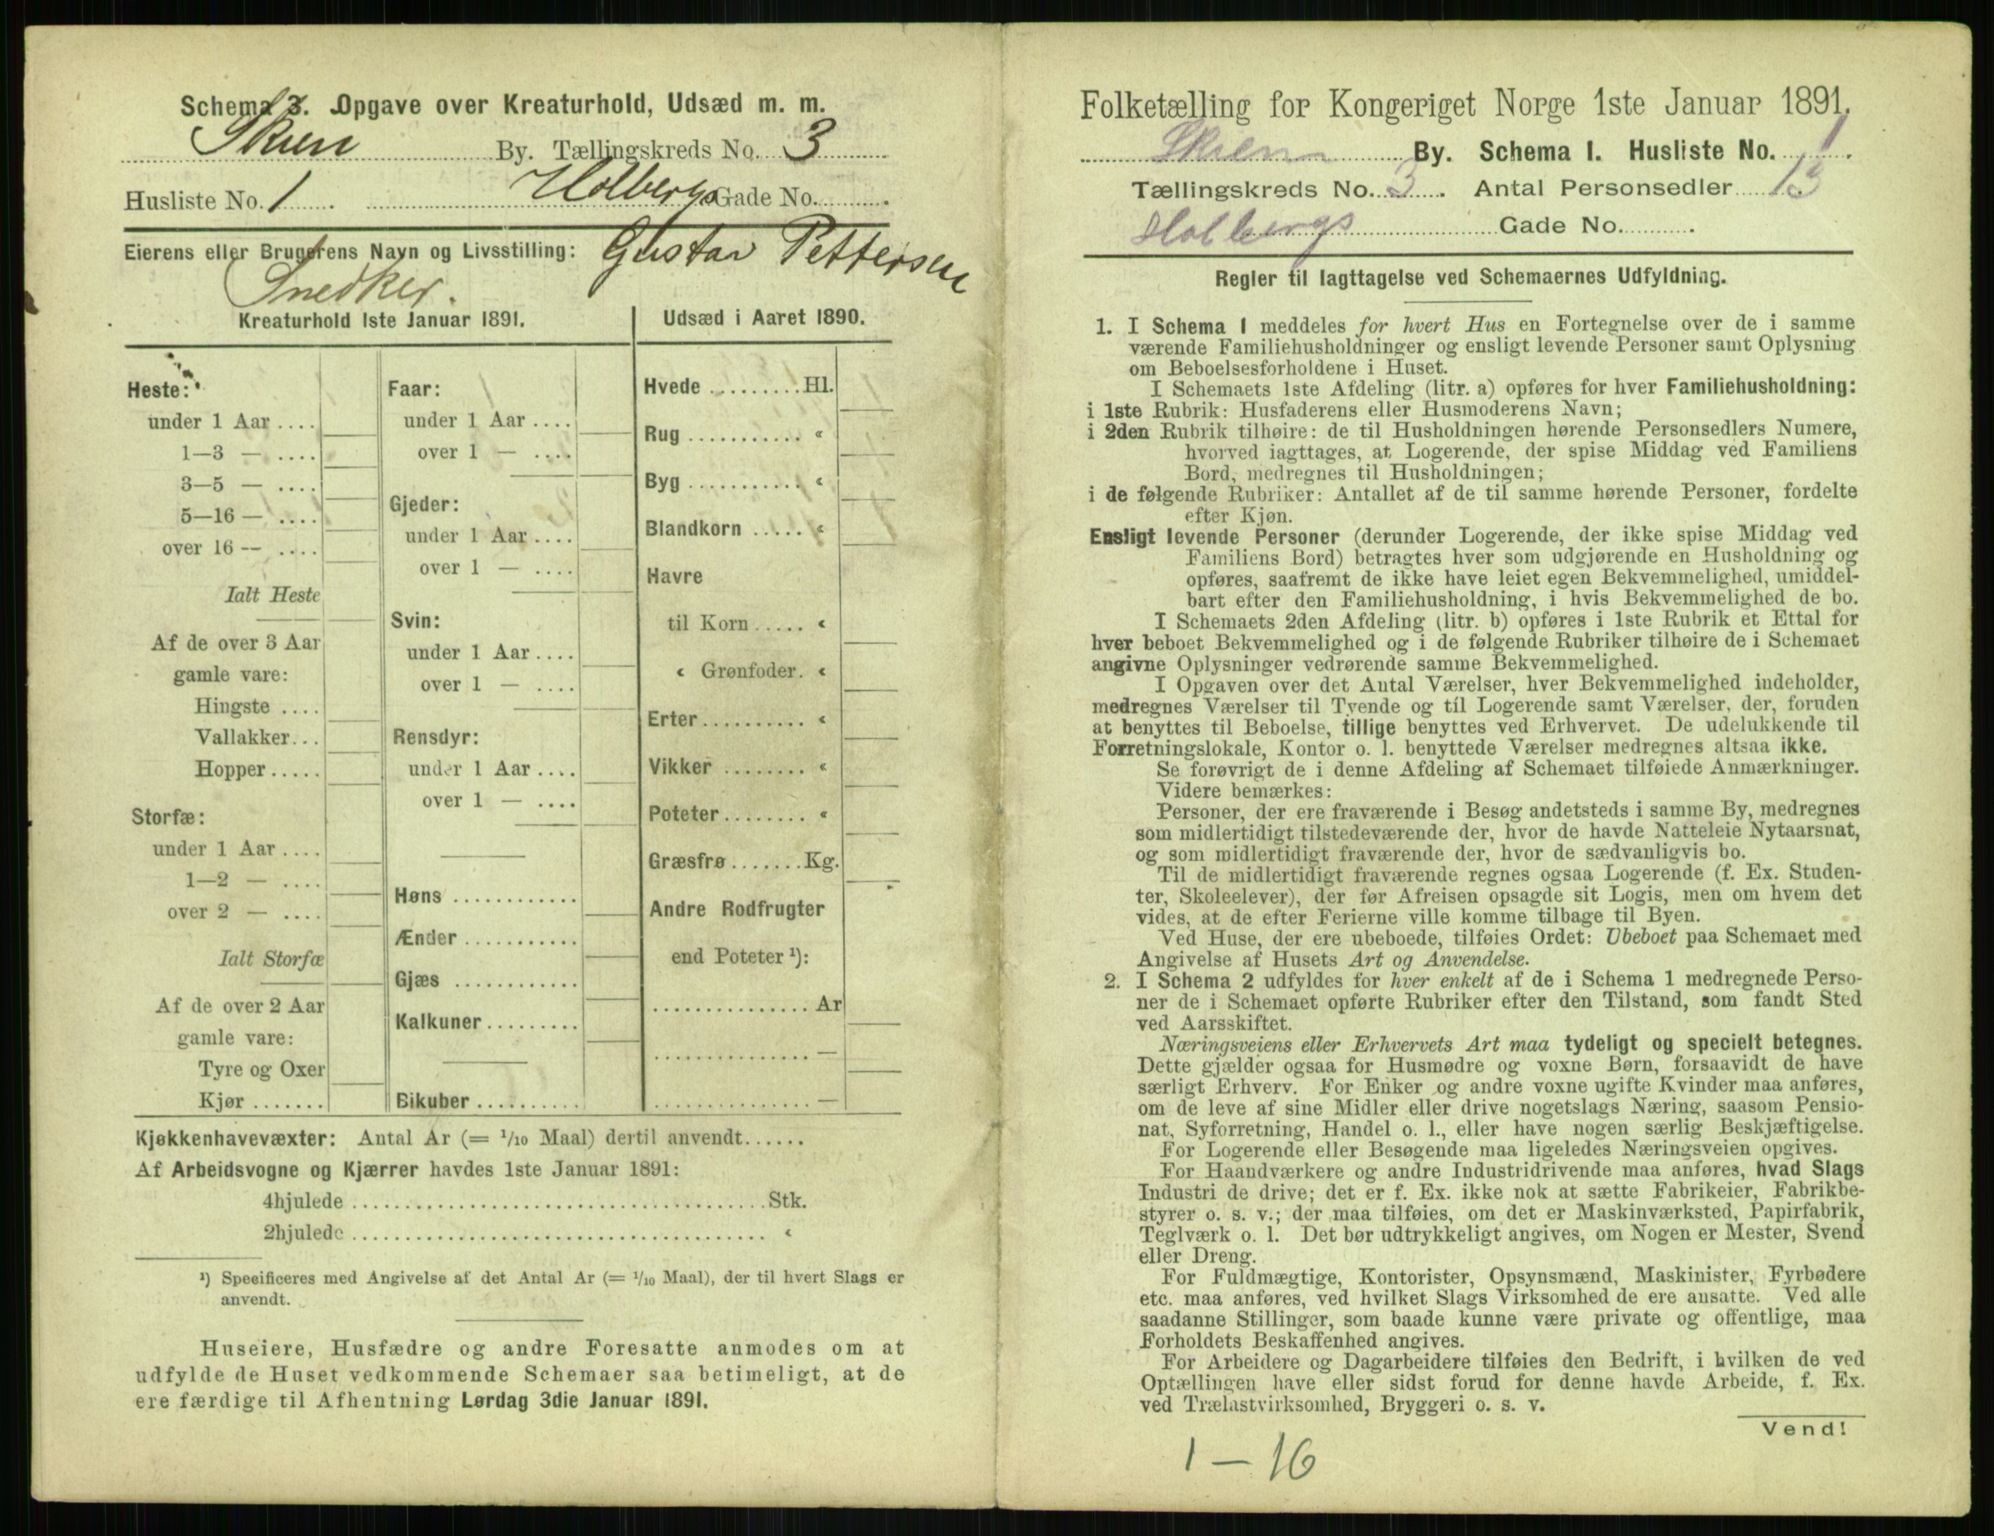 Schema 3. Opgave over Kreaturhold, Udsæd m. m.
Skien By. Tællingskreds No. 3
Husliste No. 1 Holbergs Gade No.
Eierens eller Brugerens Navn og Livsstilling: Gustav Pettersen
Snedker.
Kreaturhold 1ste Januar 1891.
Heste:
under 1 Aar ....
1—3 — ....
3—5 — ....
5—16 — ....
over 16 — ....
Ialt Heste
Af de over 3 Aar
gamle vare:
Hingste ....
Vallakker...
Hopper.....
Storfæ:
under 1 Aar ....
1—2 — ....
over 2 — ....
Ialt Storfæ
Af de over 2 Aar
gamle vare:
Tyre og Oxer
Kjør .......
Faar:
under 1 Aar ....
over 1 — ....
Gjeder:
under 1 Aar ....
over 1 — ....
Svin:
under 1 Aar ....
over 1 — ....
Rensdyr:
under 1 Aar ....
over 1 — ....
Høns ............
Ænder ...........
Gjæs ............
Kalkuner.........
Bikuber ..........
Udsæd i Aaret 1890.
Hvede .........Hl.
Rug ........... «
Byg ........... «
Blandkorn ..... «
Havre
til Korn ..... «
« Grønfoder. «
Erter.......... «
Vikker ........ «
Poteter........ «
Græsfrø .......Kg.
Andre Rodfrugter
end Poteter ¹):
............... Ar
............... —
............... —
Kjøkkenhavevæxter: Antal Ar (= 1/10 Maal) dertil anvendt......
Af Arbeidsvogne og Kjærrer havdes 1ste Januar 1891:
4hjulede ....................................Stk.
2hjulede .................................... «
¹) Specificeres med Angivelse af det Antal Ar (= 1/10 Maal), der til hvert Slags er
anvendt.
Huseiere, Husfædre og andre Foresatte anmodes om at
udfylde de Huset vedkommende Schemaer saa betimeligt, at de
ere færdige til Afhentning Lørdag 3die Januar 1891.
Folketælling for Kongeriget Norge 1ste Januar 1891.
Skien By. Schema I. Husliste No. 1
Tællingskreds No. 3. Antal Personsedler 13
Holbergs Gade No.
Regler til Iagttagelse ved Schemaernes Udfyldning.
1. I Schema 1 meddeles for hvert Hus en Fortegnelse over de i samme
værende Familiehusholdninger og ensligt levende Personer samt Oplysning
om Beboelsesforholdene i Huset.
I Schemaets 1ste Afdeling (litr. a) opføres for hver Familiehusholdning:
i 1ste Rubrik: Husfaderens eller Husmoderens Navn;
i 2den Rubrik tilhøire: de til Husholdningen hørende Personsedlers Numere,
hvorved iagttages, at Logerende, der spise Middag ved Familiens
Bord, medregnes til Husholdningen;
i de følgende Rubriker: Antallet af de til samme hørende Personer, fordelte
efter Kjøn.
Ensligt levende Personer (derunder Logerende, der ikke spise Middag ved
Familiens Bord) betragtes hver som udgjørende en Husholdning og
opføres, saafremt de ikke have leiet egen Bekvemmelighed, umiddel-
bart efter den Familiehusholdning, i hvis Bekvemmelighed de bo.
I Schemaets 2den Afdeling (litr. b) opføres i 1ste Rubrik et Ettal for
hver beboet Bekvemmelighed og i de følgende Rubriker tilhøire de i Schemaet
angivne Oplysninger vedrørende samme Bekvemmelighed.
I Opgaven over det Antal Værelser, hver Bekvemmelighed indeholder,
medregnes Værelser til Tyende og til Logerende samt Værelser, der, foruden
at benyttes til Beboelse, tillige benyttes ved Erhvervet. De udelukkende til
Forretningslokale, Kontor o. l. benyttede Værelser medregnes altsaa ikke.
Se forøvrigt de i denne Afdeling af Schemaet tilføiede Anmærkninger.
Videre bemærkes:
Personer, der ere fraværende i Besøg andetsteds i samme By, medregnes
som midlertidigt tilstedeværende der, hvor de havde Natteleie Nytaarsnat,
og som midlertidigt fraværende der, hvor de sædvanligvis bo.
Til de midlertidigt fraværende regnes ogsaa Logerende (f. Ex. Studen-
ter, Skoleelever), der før Afreisen opsagde sit Logis, men om hvem det
vides, at de efter Ferierne ville komme tilbage til Byen.
Ved Huse, der ere ubeboede, tilføies Ordet: Ubeboet paa Schemaet med
Angivelse af Husets Art og Anvendelse.
2. I Schema 2 udfyldes for hver enkelt af de i Schema 1 medregnede Perso-
ner de i Schemaet opførte Rubriker efter den Tilstand, som fandt Sted
ved Aarsskiftet.
Næringsveiens eller Erhvervets Art maa tydeligt og specielt betegnes.
Dette gjælder ogsaa for Husmødre og voxne Børn, forsaavidt de have
særligt Erhverv. For Enker og andre voxne ugifte Kvinder maa anføres,
om de leve af sine Midler eller drive nogetslags Næring, saasom Pensio-
nat, Syforretning, Handel o. l., eller have nogen særlig Beskjæftigelse.
For Logerende eller Besøgende maa ligeledes Næringsveien opgives.
For Haandværkere og andre Industridrivende maa anføres, hvad Slags
Industri de drive; det er f. Ex. ikke nok at sætte Fabrikeier, Fabrikbe-
styrer o. s. v.; der maa tilføies, om det er Maskinværksted, Papirfabrik,
Teglværk o. l. Det bør udtrykkeligt angives, om Nogen er Mester, Svend
eller Dreng.
For Fuldmægtige, Kontorister, Opsynsmænd, Maskinister, Fyrbødere
etc. maa anføres, ved hvilket Slags Virksomhed de ere ansatte. Ved alle
saadanne Stillinger, som baade kunne være private og offentlige, maa
Forholdets Beskaffenhed angives.
For Arbeidere og Dagarbeidere tilføies den Bedrift, i hvilken de ved
Optællingen have eller sidst forud for denne havde Arbeide, f. Ex.
ved Trælastvirksomhed, Bryggeri o. s. v.
Vend!
1 — 16